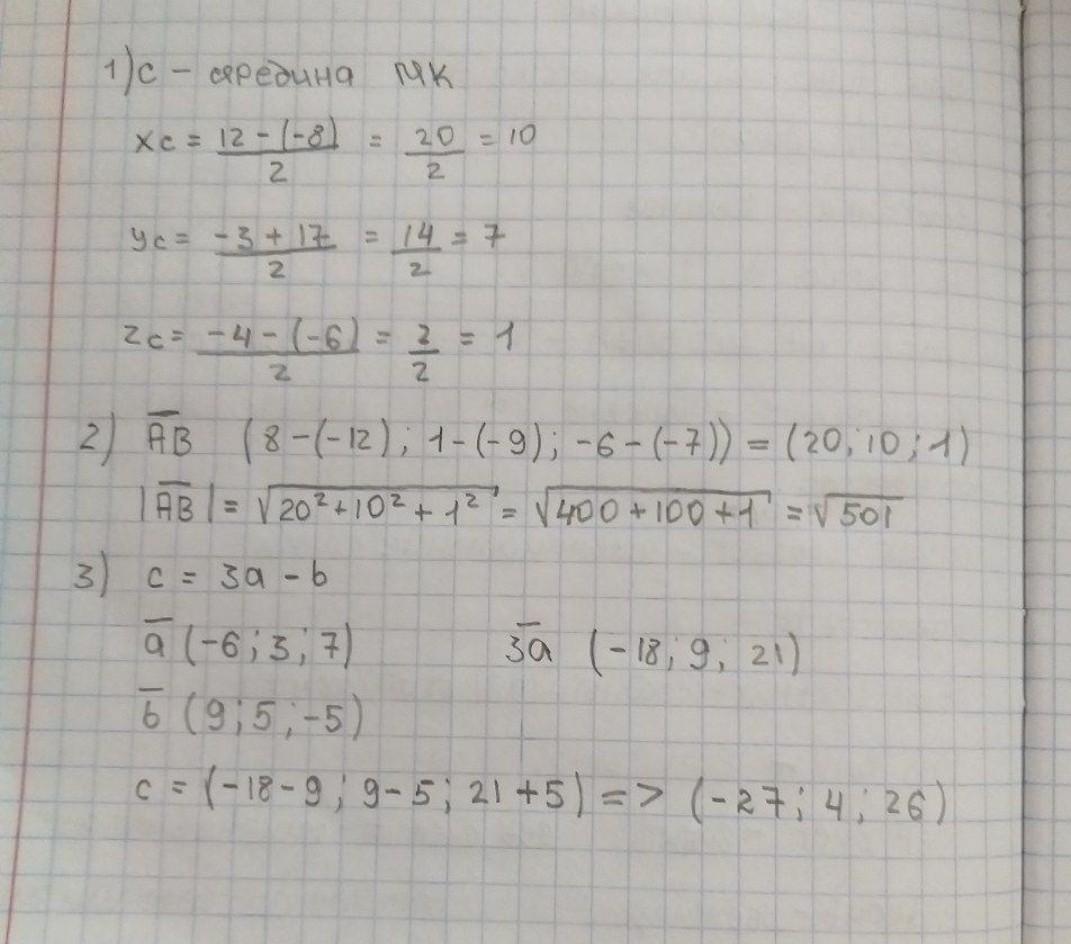 1) C - середина МК
xc = \frac{12-(-8)}{2} = \frac{20}{2} = 10
yc = \frac{-3+17}{2} = \frac{14}{2} = 7
zc = \frac{-4-(-6)}{2} = \frac{2}{2} = 1
2) \overline{AB} (8-(-12); 1-(-9); -6-(-7)) = (20; 10; 1)
|\overline{AB}| = \sqrt{20²+10²+1²} = \sqrt{400+100+1} = \sqrt{501}
3) c = 3a - b
\overline{a} (-6; 3; 7) 3\overline{a} (-18; 9; 21)
\overline{b} (9; 5; -5)
c = (-18-9; 9-5; 21+5) => (-27; 4; 26)